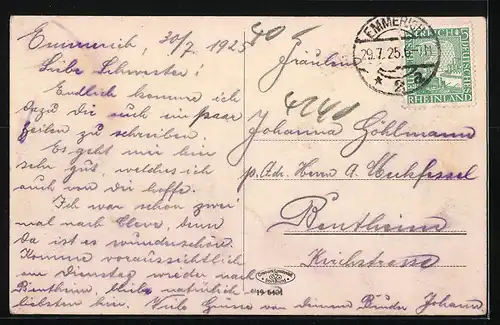 Emmerich, 30/7. 1925
Liebe Schwester!
Endlich komme ich
dazu dir auch ein paar
Zeilen zu schreiben.
Es geht mir hier
sehr gut, welches ich
auch von dir hoffe.
Ich war schon zwei
mal nach Cleve, denn
da ist es wunderschön.
Komme voraussichtlich
am Dienstag wieder nach
Bentheim, natürlich am
liebsten hin. Viele Grüsse von deinem Bruder Johann
Fräulein
4241
Johanna Göhlmann
p. Adr. Herrn A.
Bentheim
Kirchstrasse
EMMERICH
29.7.25.6-7N
* 2 a
DEUTSCHES REICH
RHEINLAND